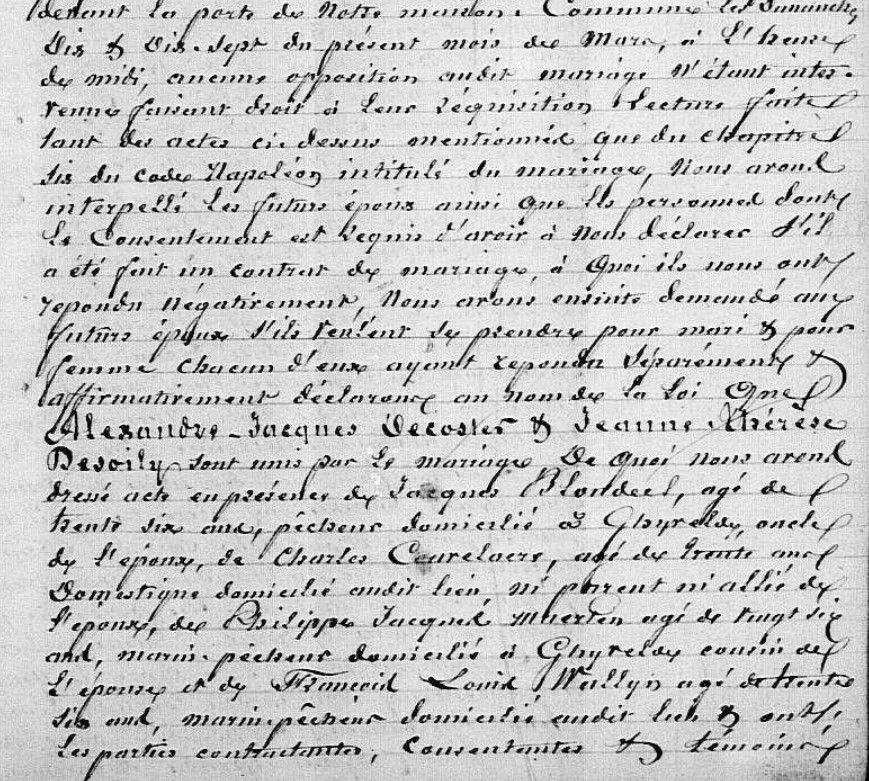 devant la porte de Notre maison. Commune les Dimanches
Dix & Dix-sept du présent mois de Mars, à l'heure
de midi, aucune opposition audit mariage N'étant inter-
venue faisant droit à leur réquisition Lecture faite
tant des actes ci-dessus mentionnés que du chapitre
six du code Napoléon intitulé du mariage, Nous avons
interpellé les futurs époux ainsi que les personnes dont
le Consentement est requis d'avoir à Nous déclarer s'il
a été fait un contrat de mariage, à Quoi ils nous ont
repondu Négativement, Nous avons ensuite demandé aux
futurs époux s'ils veulent se prendre pour mari & pour
femme chacun d'eux ayant repondu séparément &
affirmativement déclarons au nom de la loi Que
Alexandre-Jacques Decoster & Jeanne Thérèse
Desoily sont unis par le mariage De quoi nous avons
dressé acte en présence de Jacques Blondeel, agé de
trente six ans, pêcheur domicilié à Ghyvelde, oncle
de l'époux, de Charles Couvelaere, agé de trente ans
Domestique domicilié audit lieu, ni parent ni allié de
l'époux, de Philippe Jacques Maerten agé de vingt six
ans, marin-pêcheur domicilié à Ghyvelde cousin de
L'épouse et de François Louis Wallyn agé de trente
six ans, marin pêcheur domicilié audit lieu & ont,
Les parties contractantes, consentantes & témoins